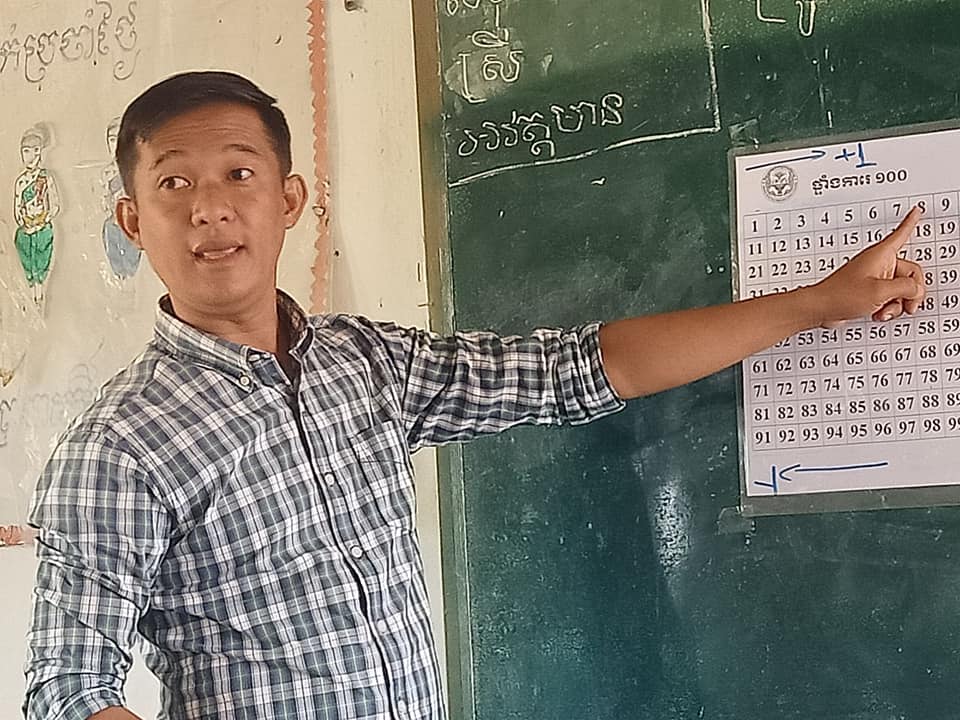 ប្រចាំថ្ងៃ
ស្រី
អវត្តមាន
+1
ផ្ទាំងការេ ១០០
1 2 3 4 5 6 7 8 9
11 12 13 14 15 16 18 19
21 22 23 24 28 29
39
48 49
53 54 55 56 57 58 59
61 62 63 64 65 66 67 68 69
71 72 73 74 75 76 77 78 79
81 82 83 84 85 86 87 88 89
91 92 93 94 95 96 97 98 99